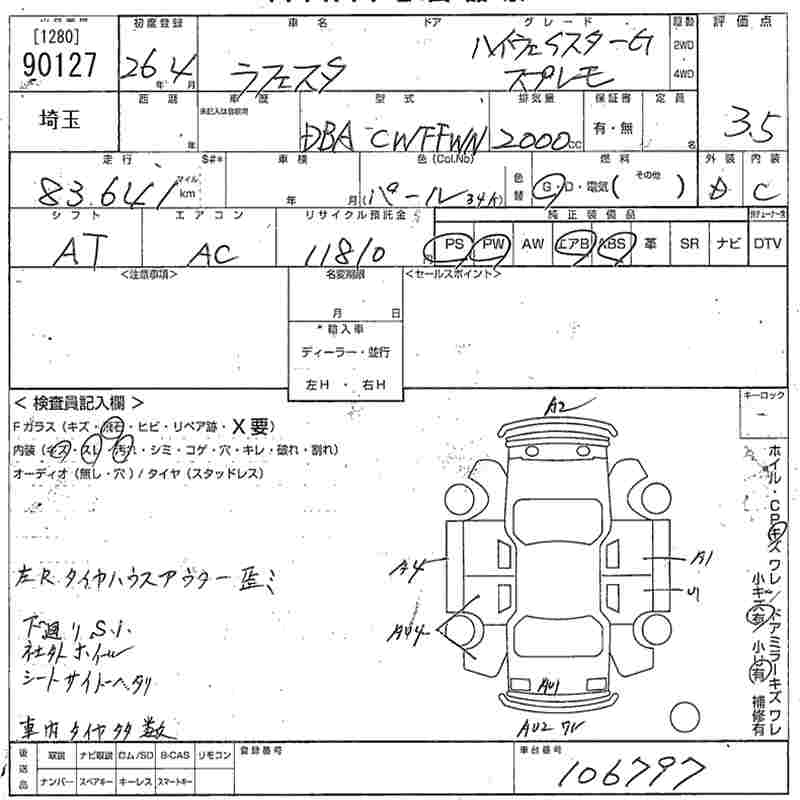 [1280]
90127
初度登録
車名
ドア
グレード
駆動
評価点
26年4月
ラフェスタ
ハイウェイスターG
スプレモ
2WD
4WD
埼玉
西暦
車歴
型式
排気量
保証書
定員
未記入は自家用
年
DBA CWFFWN
2000cc
有・無
名
3.5
走行
S#*
車検
色(Col.No)
色替
燃料
外装
内装
83.641
マイル
km
年 月
パール 34K
G・D・電気( その他 )
D
C
シフト
エアコン
リサイクル預託金
純正装備品
AT
AC
11810円
PS
PW
AW
エアB
ABS
革
SR
ナビ
DTV
<注意事項>
名変期限
<セールスポイント>
月 日
*輸入車
ディーラー・並行
左H ・ 右H
< 検査員記入欄 >
Fガラス(キズ・飛石・ヒビ・リペア跡・X要)
内装(キズ・スレ・汚れ・シミ・コゲ・穴・キレ・破れ・割れ)
オーディオ(無し・穴)/タイヤ(スタッドレス)
キーロック
ホイル・CPキズ ワレ/ドアミラーキズ ワレ
小キズ有 小凹有 補修有
A2
A4
A1
U1
AU4
AU1
AU2 ワレ
左R タイヤハウスアウター歪ミ
下廻り S.i.
社外ホイール
シートサイドヘタリ
車内タイヤ多数
後送品
取説
ナビ取説
ロム/SD
B-CAS
リモコン
ナンバー
スペアキー
キーレス
スマートキー
登録番号
車台番号
106797